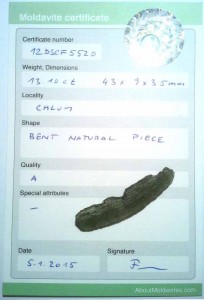 Moldavite certificate
Certificate number
12DSCF5520
Weight, Dimensions
13.10ct 43 x 9 x 3.5mm
Locality
CHLUM
Shape
BENT NATURAL PIECE
Quality
A
Special attributes
–
Date
Signature
5.1.2015
AboutMoldavites.com